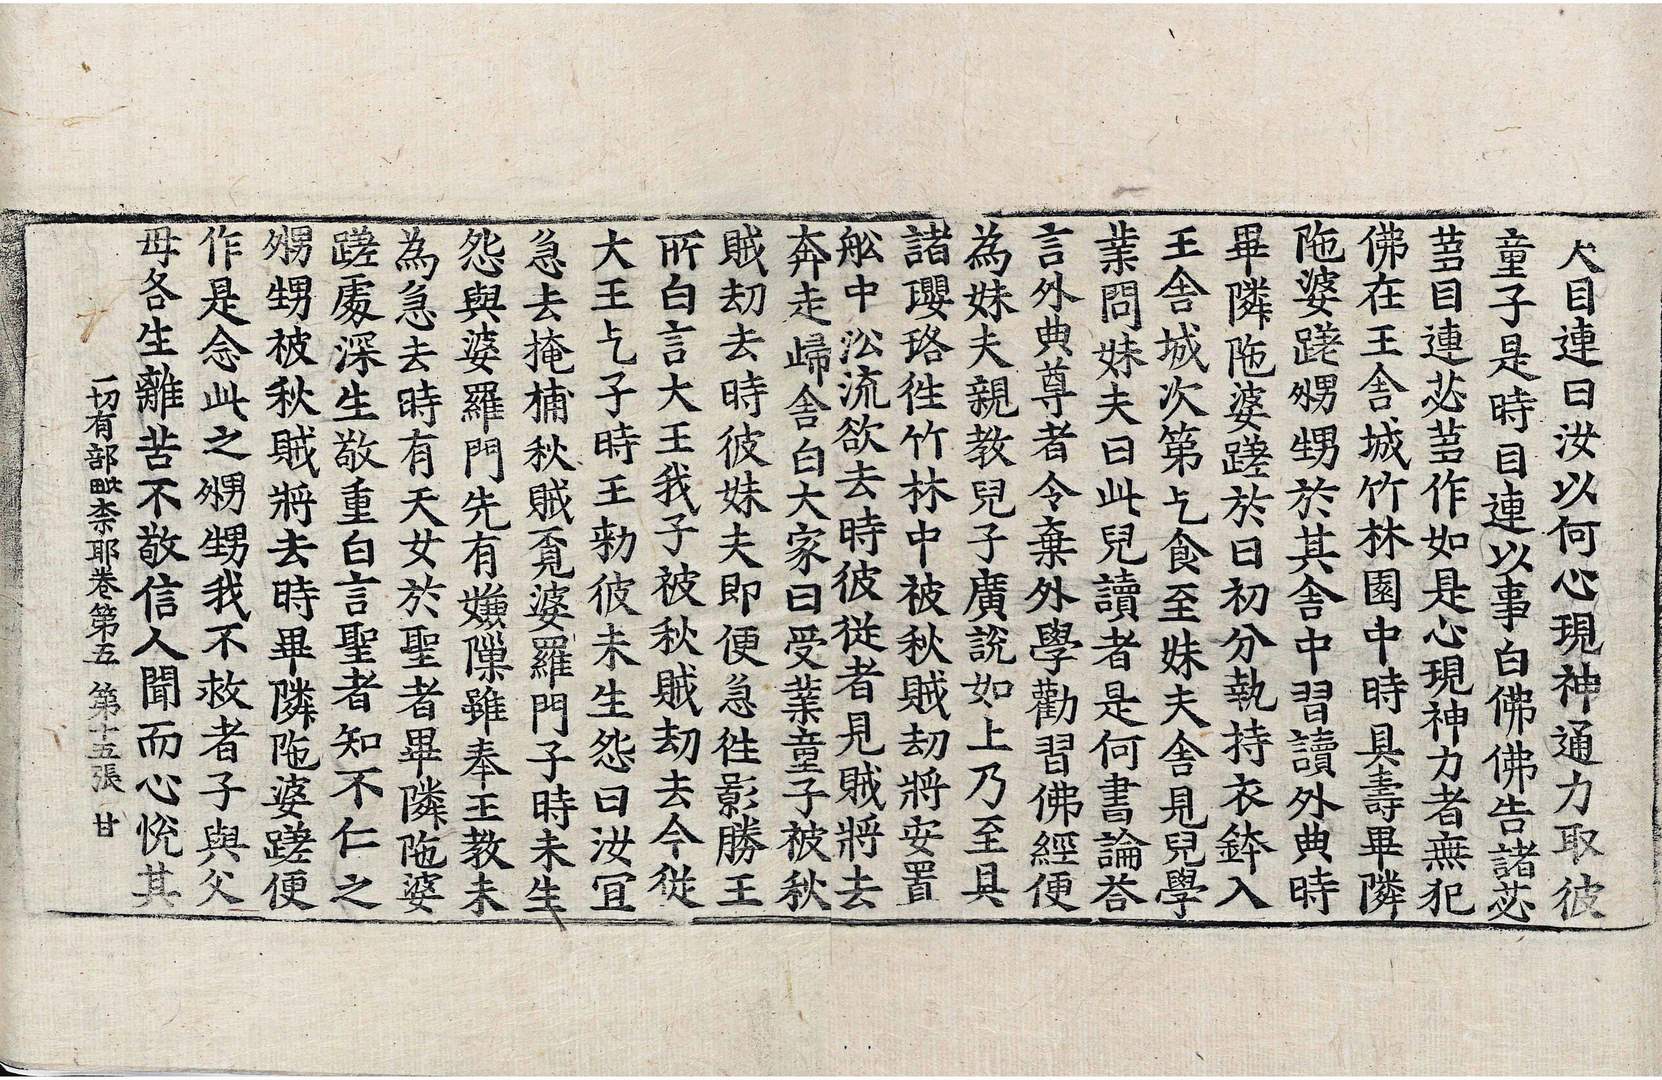 大目連曰汝以何心現神通力取彼
童子是時目連以事白佛佛告諸苾
蒭目連苾蒭作如是心現神力者無犯
佛在王舍城竹林園中時具壽畢隣
陁婆蹉甥甥於其舍中習讀外典時
畢隣陁婆蹉於日初分執持衣鉢入
王舍城次第乞食至妹夫舍見兒學
業問妹夫曰此兒讀者是何書論荅
言外典尊者令棄外學勸習佛經便
為妹夫親教兒子廣說如上乃至具
諸瓔珞徃竹林中被秋賊劫將安置
舩中㳂流欲去時彼從者見賊將去
奔走歸舍白大家曰受業童子被秋
賊劫去時彼妹夫即便急徃影勝王
所白言大王我子被秋賊劫去今從
大王乞子時王勑彼未生怨曰汝冝
急去掩捕秋賊覔婆羅門子時未生
怨與婆羅門先有嫌隟雖奉王教未
為急去時有天女於聖者畢隣陁婆
蹉處深生敬重白言聖者知不仁之
甥甥被秋賊將去時畢隣陁婆蹉便
作是念此之甥甥我不救者子與父
母各生離苦不敬信人聞而心恱其
一切有部毗柰耶卷第五　第十五張　甘